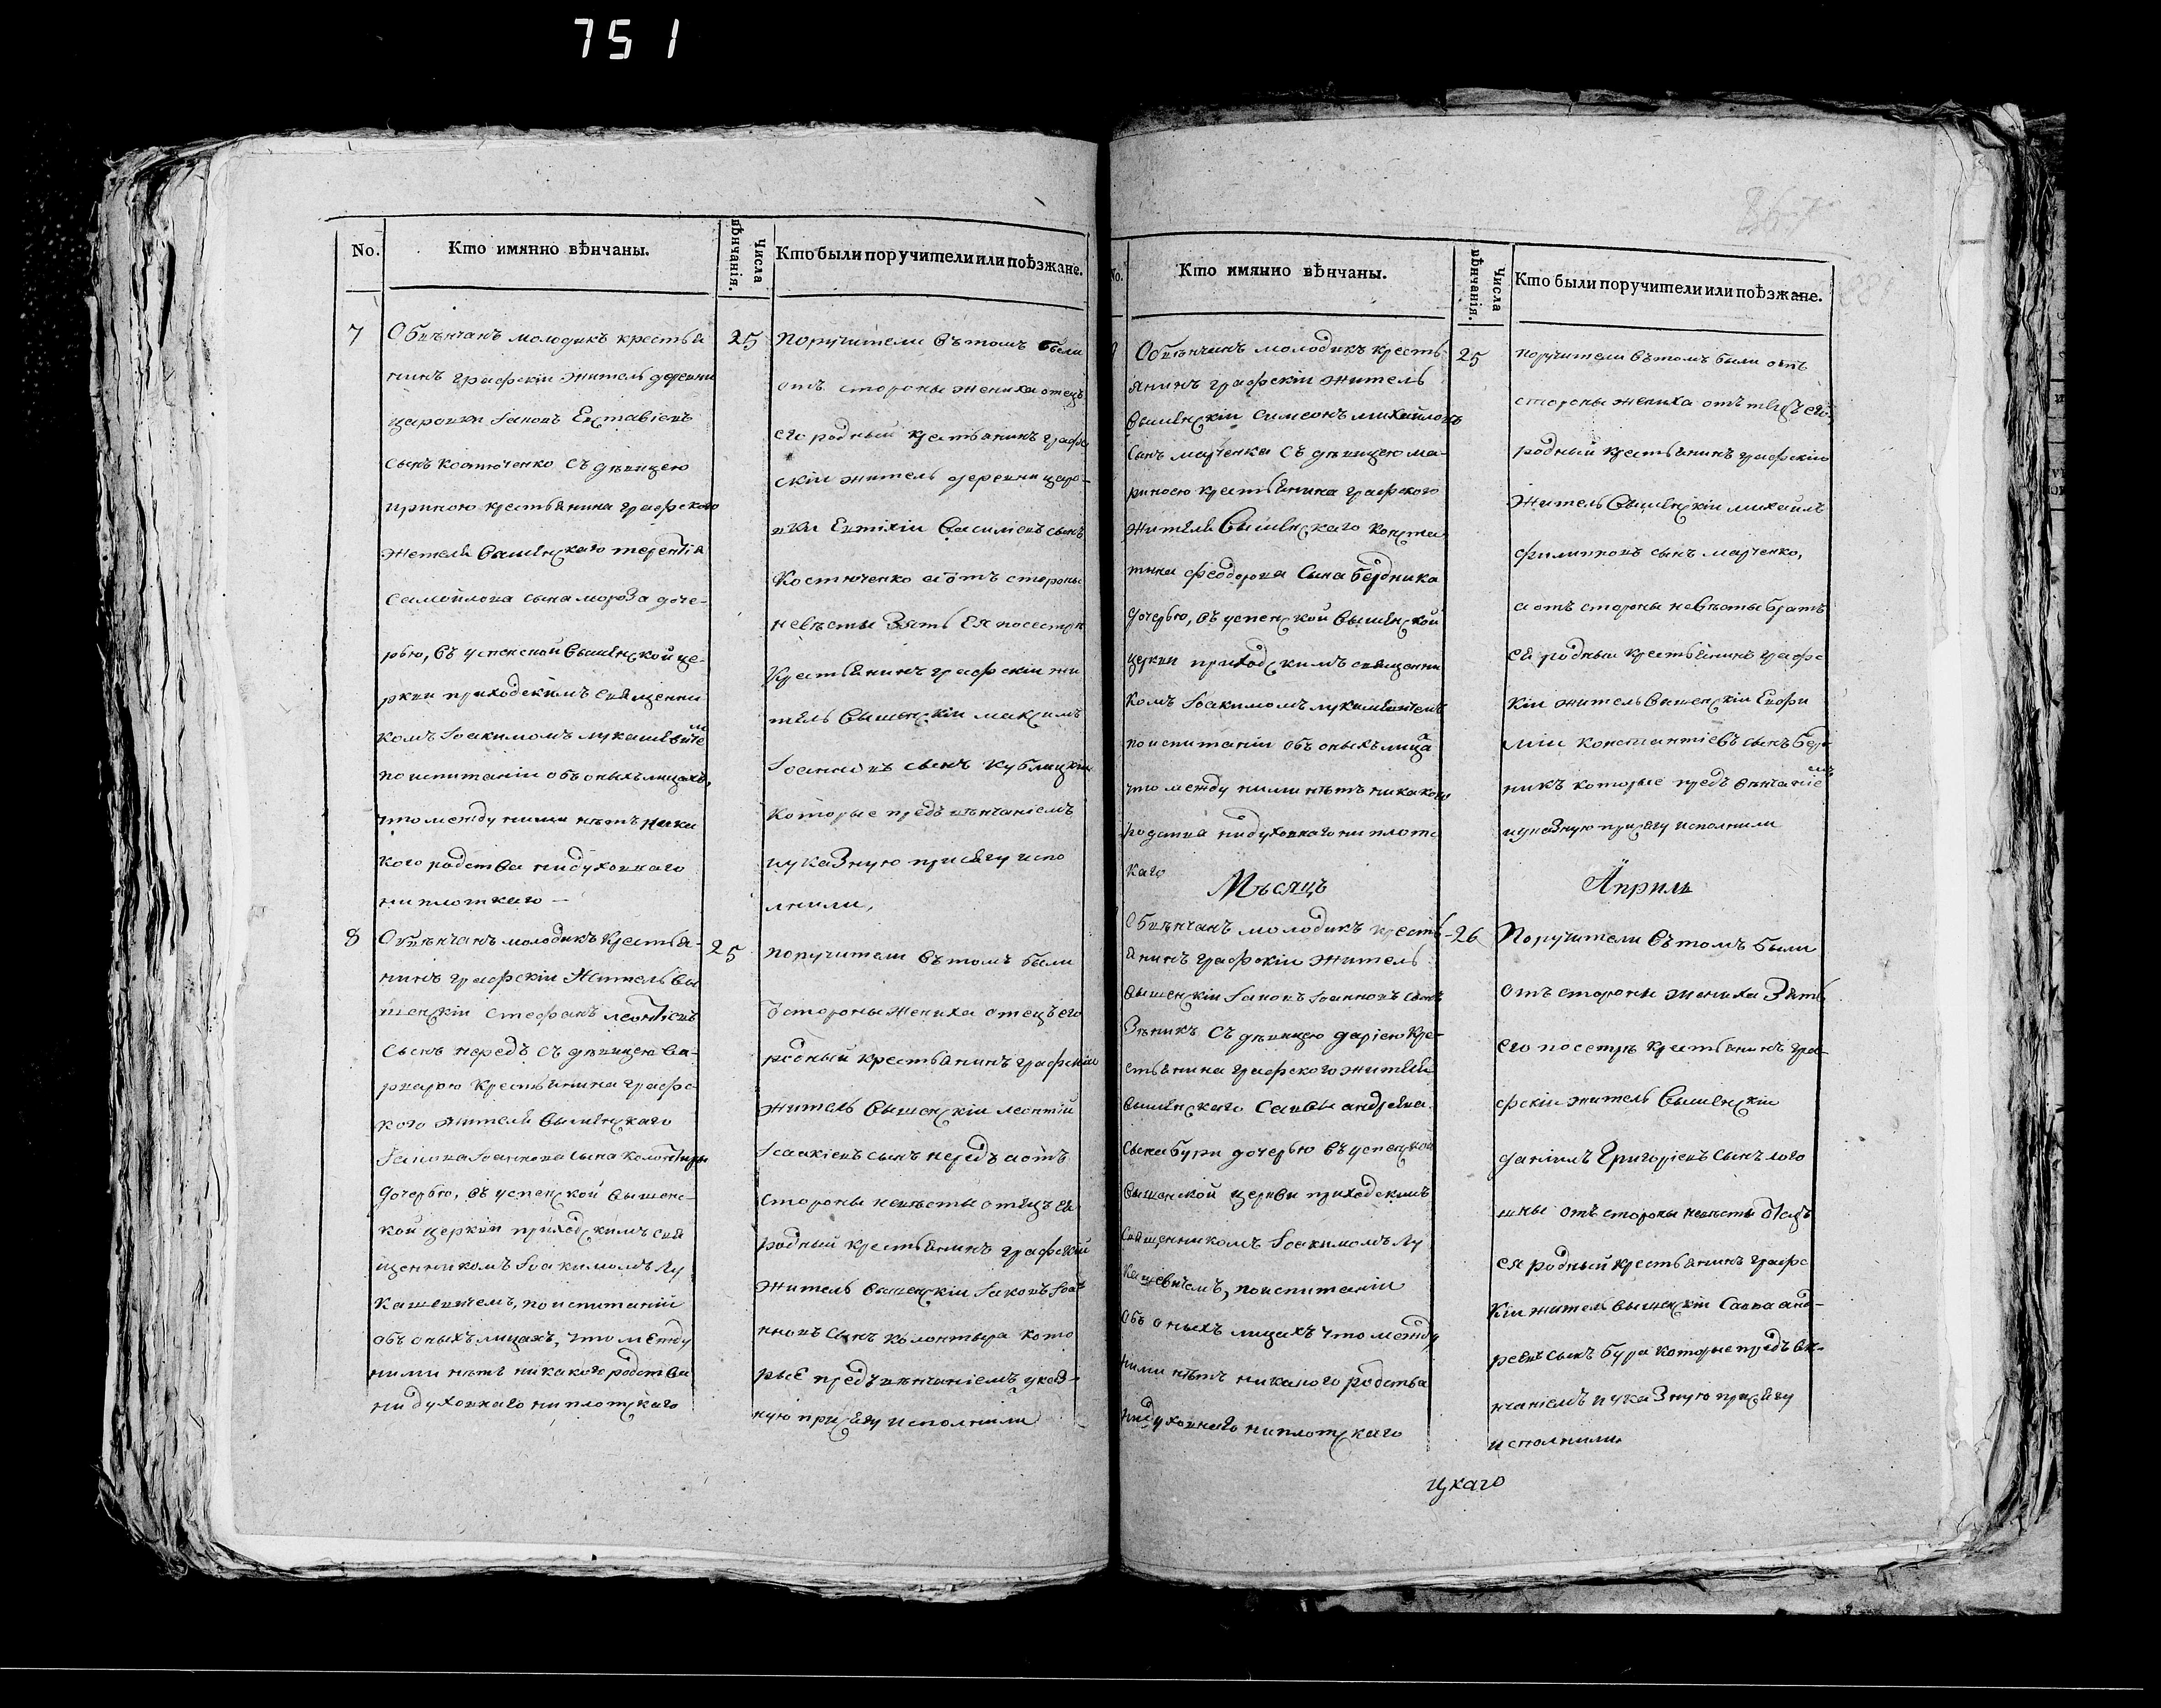 751
No.
Кто имянно вѣнчаны.
Числа вѣнчанія.
Кто были поручители или поѣзжане.
7
Обвѣнчанъ молодикъ крестья
нинъ графскіи житель деревни
царовки Іаковъ Евставіевъ
сынъ Костюченко съ дѣвицею
ириною крестьянина графского
жетеля вышенскаго терентія
самойлова сына мороза доче-
рью, въ успенской вышенской це-
ркви приходскимъ священни
комъ Іоакимомъ лукашевиче
мъ
по испитаніи объ оныхъ лицахъ,
что между ними нѣтъ ника
кого родства ни духовнаго
ни плотскаго —
25
Поручители въ томъ были
отъ стороны жениха отецъ
его родный крестьянинъ графс
скіи житель деревни царо-
вки Евтіхіи Василіевъ сынъ
Костюченко а отъ стороны
невѣсты зять ея по сестрѣ
Крестьянинъ графскіи жи
тель вышенскіи максимъ
Іоанновъ сынъ кублицкіи
которые предъ вѣнчаніемъ
и указную присягу испо
лнили,
8
Обвѣнчанъ молодикъ Крестья-
нинъ графскіи Житель вы
шенскіи стефанъ леонтіевъ
сынъ передъ съ дѣвицею ва-
рварою Крестьянина графс
кого жителя вышенскаго
Іакова Іоаннова сына колонтыры
дочерью, въ успенской вышенс-
кой церкви приходскимъ свя
щенникомъ Іоакимомъ лу
кашевичемъ, по испитаніи
объ оныхъ лицахъ, что между
ними нѣтъ никакого родства
ни духовнаго ни плотскаго
25
поручители въ томъ были
стороны жениха отецъ его
родный крестьянинъ графскіи
житель вышенскіи леонтій
Ісаакіевъ сынъ передъ а отъ
стороны невѣсты отецъ ея
родный крестьянинъ графскій
житель вышенскіи Іаковъ Іоа
нновъ сынъ колонтыра кото
рые предъ вѣнчаніемъ указ-
ную присягу исполнили
No.
Кто имянно вѣнчаны.
Числа вѣнчанія.
Кто были поручители или поѣзжане.
Обвѣнчанъ молодикъ кресть-
янинъ графскіи житель
вышенскіи симеонъ михайловъ
сынъ марченко съ дѣвицею ма-
риною крестьянина графского
жителя вышенскаго конста
тина феодорова сына бердника
дочерью, въ успенской вышенской
церкви приходскимъ священни
комъ Іоакимомъ лукашевичемъ
по испитаніи объ оныхъ лица
что между ними нѣтъ никакого
родства ни духовнаго ни плотс
каго
25
поручители въ томъ были отъ
стороны жениха отъ отецъ его
родный крестьянинъ графскіи
житель вышенскіи михаилъ
филиповъ сынъ марченко,
а отъ стороны невѣсты братъ
ея родныи крестьянинъ графс
кіи житель вышенскіи Евфи
міи константіевъ сынъ берд
никъ которые предъ вѣнчаніе
емъ
и указную присягу исполнили
Мѣсяцъ
Априль
Обвѣнчанъ молодикъ кресть-
янинъ графскіи житель
вышенскіи Іаковъ Іоанновъ сынъ
Зѣникъ съ дѣвицею даріею Кре-
стьянина графского жителя
вышенскаго саввы андреева
сына бури дочерью въ успенской
вышенской церкви приходскимъ
священникомъ Іоакимомъ лу
кашевичемъ, по испитаніи
объ оныхъ лицахъ что между
ними нѣтъ никакого родства
ни духовнаго ни плотскаго
26
Поручители въ томъ были
отъ стороны жениха зять
его по сестрѣ крестьянинъ гра-
фскіи житель вышенскіи
даніилъ григоріевъ сынъ лого
шны отъ стороны невѣсты отецъ
ея родный крестьянинъ графс
кіи житель вышенскіи савва анд-
реевъ сынъ бура которые предъ вѣ-
нчаніемъ и указную присягу
исполнили
цкаго